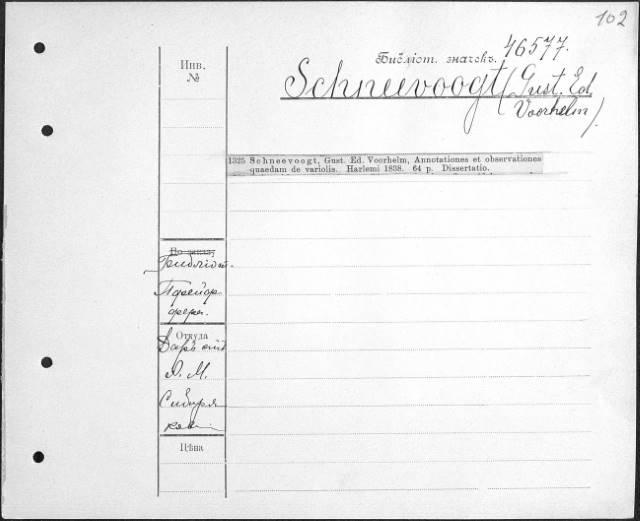 102
Библіот. значекъ. 46577.
Инв.
№
Schneevoogt (Gust. Ed.
Voorhelm).
1325 Schneevoogt, Gust. Ed. Voorhelm, Annotationes et observationes
quaedam de variolis. Harlemi 1838. 64 p. Dissertatio.
По заказу
Библіот.
Пфейф-
фера.
Откуда
Даръ отъ
А. М.
Сибиря-
кова
Цѣна